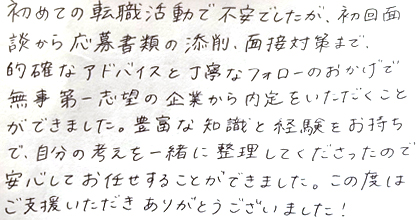 初めての転職活動で不安でしたが、初回面
談から応募書類の添削、面接対策まで、
的確なアドバイスと丁寧なフォローのおかげで
無事第一志望の企業から内定をいただくこと
ができました。豊富な知識と経験をお持ち
で、自分の考えを一緒に整理してくださったので
安心してお任せすることができました。この度は
ご支援いただきありがとうございました!